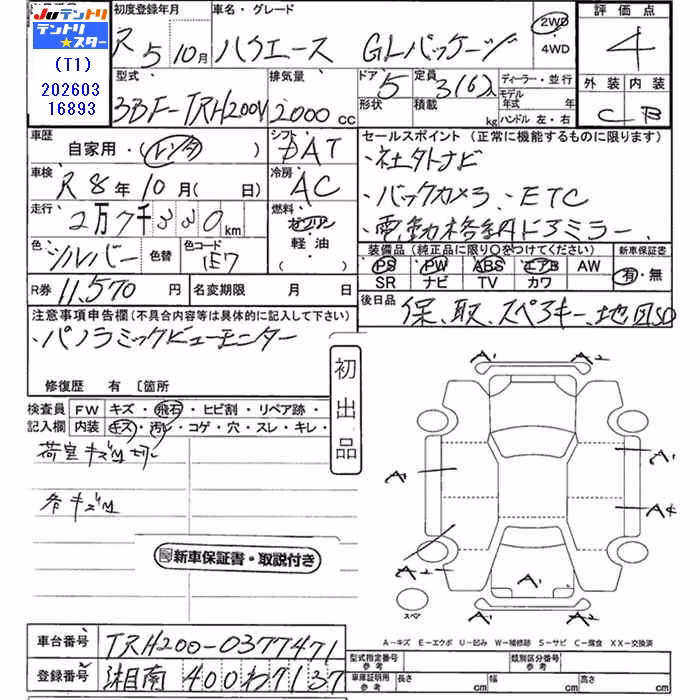 Juテントリ
テントリ
テントリ★スター
(T1)
202603
16893
初度登録年月 車名・グレード 評価点
R 5 10月 ハイエース GLパッケージ 2WD・4WD 4
型式 排気量 ドア 定員 ディーラー・並行 外装 内装
3BF-TRH200V 2000 cc 5 3(6)人 モデル年式 年式 C B
形状 積載 kg ハンドル 左・右
車歴 シフト セールスポイント(正常に機能するものに限ります)
自家用・(レンタ) DAT ・社外ナビ
車検 冷房
R 8年 10月( 日) AC ・バックカメラ・ETC
走行 燃料
2万7千330km ガソリン ・電動格納ドアミラー
軽・油
( )
色 色替 色コード 装備品(純正品に限り○をつけてください) 新車保証書
シルバー 1E7 PS PW ABS エアB AW 有・無
SR ナビ TV カワ
R券 11,570円 名変期限 月 日 後日品 保、取、スペアキー、地図SD
注意事項申告欄(不具合内容等は具体的に記入して下さい)
・パノラミックビューモニター
修復歴 有 〔箇所
初出品
検査員 FW キズ・飛石・ヒビ割・リペア跡・
記入欄 内装 キズ・汚レ・コゲ・穴・スレ・キレ・
荷室キズM切レ
各キズM
新車保証書・取説付き
A¹ A²
A¹ A¹
A¹ A4
A¹
スペア
A¹ A²
A-キズ E-エクボ U-凹み W-補修跡 S-サビ C-腐食 XX-交換済
車台番号 TRH200-0377471
型式指定番号 参考 類別区分番号 参考
登録番号 湘南 400 わ 7137
車庫証明用 参考 長さ cm 幅 cm 高さ cm